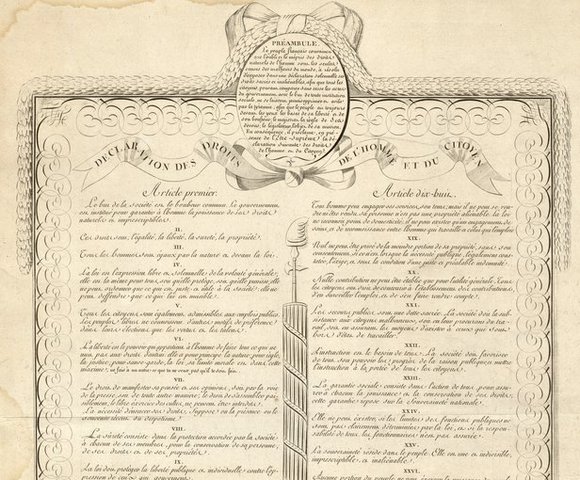 PRÉAMBULE.
Le peuple français convaincu
que l'oubli et le mépris des droits
naturels de l'homme sont les seules
causes des malheurs du monde, a résolu
d'exposer dans une déclaration solennelle ces
droits sacrés et inaliénables, afin que tous les
citoyens pouvant comparer sans cesse les actes
du gouvernement avec le but de toute institution
sociale, ne se laissent jamais opprimer et avilir
par la tyrannie; afin que le peuple ait toujours
devant les yeux les bases de sa liberté et de
son bonheur, le magistrat la règle de ses
devoirs, le législateur l'objet de sa mission.
En conséquence, il proclame, en pré-
sence de l'Être-Suprême, la dé-
claration suivante des droits
de l'homme et du Citoyen.
DECLARATION DES DROITS DE L'HOMME ET DU CITOYEN
Article premier.
Le but de la société est le bonheur commun. Le gouvernement
est institué pour garantir à l'homme la jouissance de ses droits
naturels et imprescriptibles.
II.
Ces droits sont, l'égalité, la liberté, la sureté, la propriété.
III.
Tous les hommes sont égaux par la nature et devant la loi.
IV.
La loi est l'expression libre et solennelle de la volonté générale;
elle est la même pour tous, soit qu'elle protège, soit qu'elle punisse; elle
ne peut ordonner que ce qui est juste et utile à la société; elle ne
peut défendre que ce qui lui est nuisible.
V.
Tous les citoyens sont également admissibles aux emplois publics.
Les peuples libres ne connoissent d'autres motifs de préférence
dans leurs élections que les vertus et les talens.
VI.
La liberté est le pouvoir qui appartient à l'homme de faire tout ce qui ne
nuit pas aux droits d'autrui: elle a pour principe la nature, pour règle
la justice, pour sauve-garde la loi; sa limite morale est dans cette
maxime: ne fais à un autre ce que tu ne veux pas qu'il te soit fait.
VII.
Le droit de manifester sa pensée et ses opinions, soit par la voie
de la presse, soit de toute autre manière, le droit de s'assembler pai-
siblement, le libre exercice des cultes, ne peuvent être interdits.
La nécessité d'énoncer ces droits suppose ou la présence ou le
souvenir récent du despotisme.
VIII.
La sûreté consiste dans la protection accordée par la Société
à chacun de ses membres, pour la conservation de sa personne,
de ses droits et de ses propriétés.
IX.
La loi doit protéger la liberté publique et individuelle contre l'op-
pression de ceux qui gouvernent.
Article dix-huit.
Tout homme peut engager ses services, son tems; mais il ne peut se ven-
dre ni être vendu; sa personne n'est pas une propriété aliénable. La loi
ne reconnoit point de domesticité; il ne peut exister qu'un engagement de
soins et de reconnoissance entre l'homme qui travaille et celui qui l'emploie.
XIX.
Nul ne peut être privé de la moindre portion de sa propriété, sans son
consentement, si ce n'est lorsque la nécessité publique, légalement cons-
tatée, l'exige, et sous la condition d'une juste et préalable indemnité.
XX.
Nulle contribution ne peut être établie que pour l'utilité générale. Tous
les citoyens ont droit de concourir à l'établissement des contributions,
d'en surveiller l'emploi, et de s'en faire rendre compte.
XXI.
Les secours publics sont une dette sacrée. La société doit la sub-
sistance aux citoyens malheureux, soit en leur procurant du tra-
vail, soit en assurant les moyens d'exister à ceux qui sont
hors d'état de travailler.
XXII.
L'instruction est le besoin de tous. La société doit favoriser
de tout son pouvoir les progrès de la raison publique, et mettre
l'instruction à la portée de tous les citoyens.
XXIII.
La garantie sociale consiste dans l'action de tous, pour assu-
rer à chacun la jouissance et la conservation de ses droits;
cette garantie repose sur la souveraineté nationale.
XXIV.
Elle ne peut exister, si les limites des fonctions publiques ne
sont pas clairement déterminées par la loi, et si la respon-
sabilité de tous les fonctionnaires n'est pas assurée.
XXV.
La souveraineté réside dans le peuple. Elle est une et indivisible,
imprescriptible et inaliénable.
XXVI.
Aucune portion du peuple ne peut exercer la puissance du